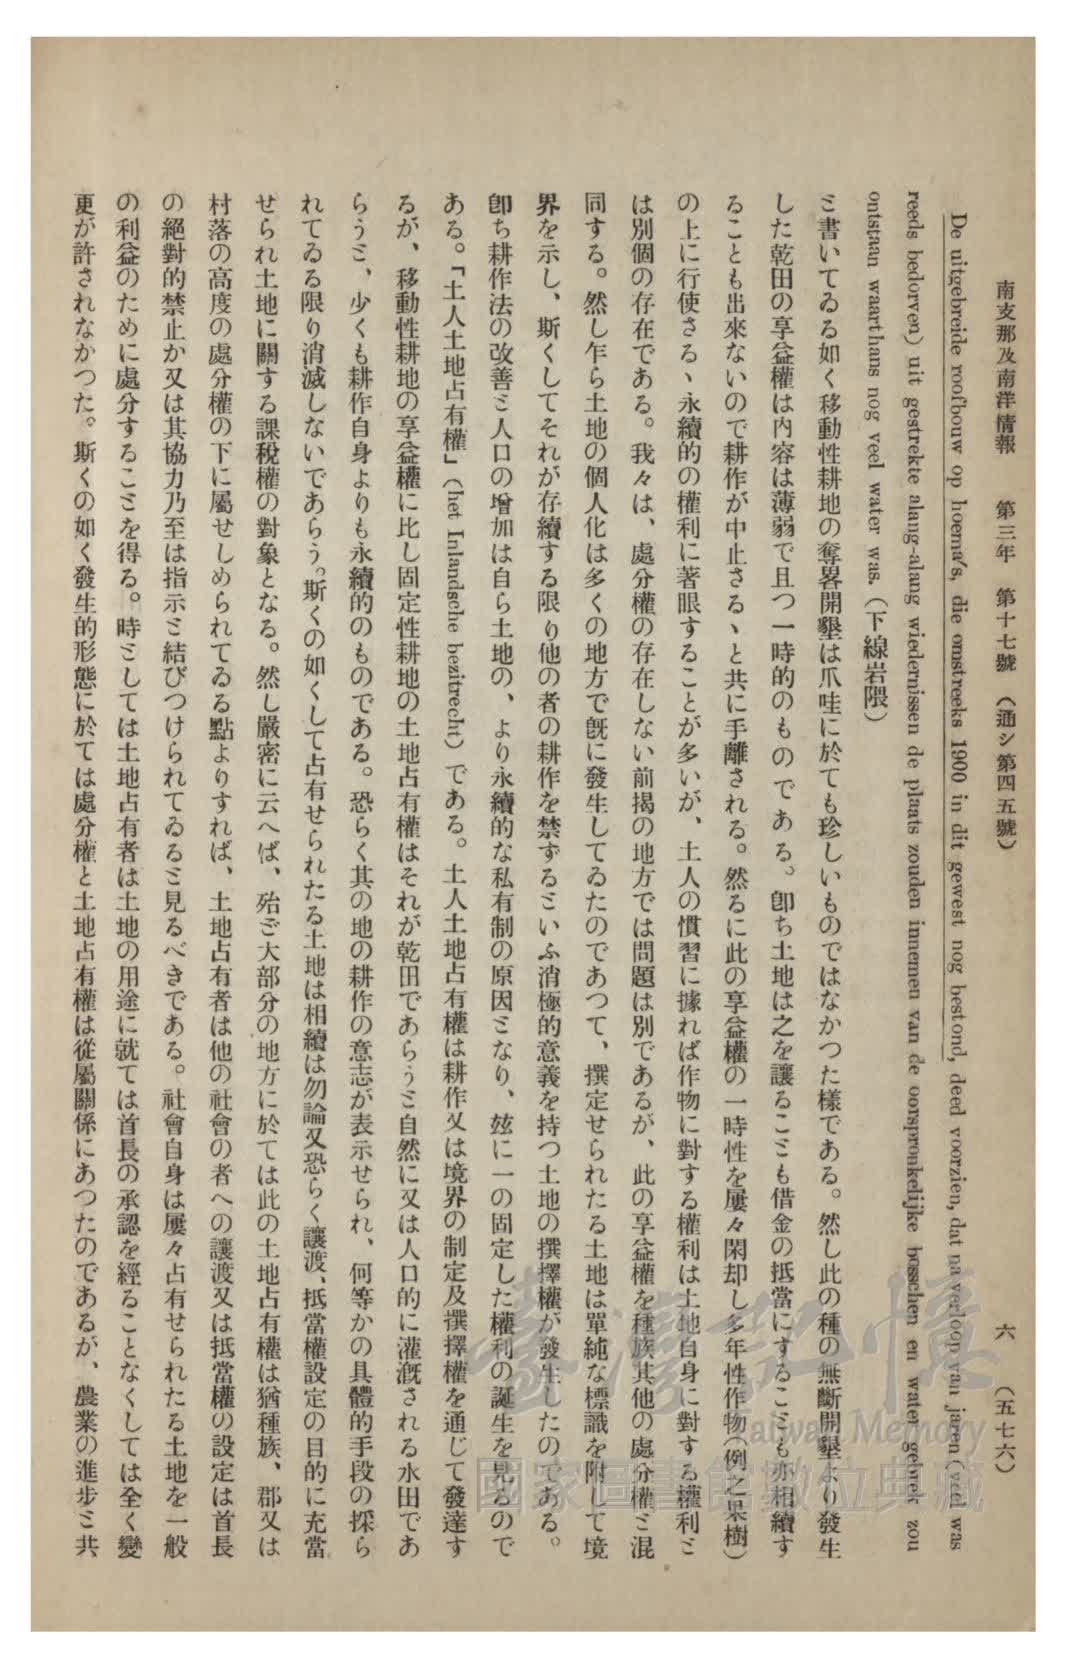 南支那及南洋情報　第三年　第十七號　（通シ第四五號）　六　（五七六）
De uitgebreide roofbouw op hoema's, die omstreeks 1900 in dit gewest nog bestond, deed voorzien, dat na verloop van jaren (veel was
reeds bedorven) uit gestrekte alang-alang wiedernissen de plaats zouden innemen van de oorspronkelijke bosschen en water gebrek zou
ontstaan waar thans nog veel water was.（下線岩隈）
ミ書いてゐる如く移動性耕地の奪畧開墾は爪哇に於ても珍しいものではなかつた樣である。然し此の種の無斷開墾より發生
した乾田の享益權は內容は薄弱で且つ一時的のものである。卽ち土地は之を讓るこミも借金の抵當にするこミも亦相續す
ることも出來ないので耕作が中止さるゝと共に手離される。然るに此の享益權の一時性を屢々閑却し多年性作物（例之果樹）
の上に行使さるゝ永續的の權利に著眼することが多いが、土人の慣習に據れば作物に對する權利は土地自身に對する權利ミ
は別個の存在である。我々は、處分權の存在しない前揭の地方では問題は別であるが、此の享益權を種族其他の處分權ミ混
同する。然し乍ら土地の個人化は多くの地方で旣に發生してゐたのであつて、撰定せられたる土地は單純な標識を附して境
界を示し、斯くしてそれが存續する限り他の者の耕作を禁ずるミいふ消極的意義を持つ土地の撰擇權が發生したのである。
卽ち耕作法の改善ミ人口の增加は自ら土地の、より永續的な私有制の原因ミなり、玆に一の固定した權利の誕生を見るので
ある。「土人土地占有權」（het Inlandsche bezitrecht）である。土人土地占有權は耕作又は境界の制定及撰擇權を通じて發達す
るが、移動性耕地の享益權に比し固定性耕地の土地占有權はそれが乾田であらうミ自然に又は人口的に灌漑される水田であ
らうミ、少くも耕作自身よりも永續的のものである。恐らく其の地の耕作の意志が表示せられ、何等かの具體的手段の採ら
れてゐる限り消滅しないであらう。斯くの如くして占有せられたる土地は相續は勿論又恐らく讓渡、抵當權設定の目的に充當
せられ土地に關する課稅權の對象となる。然し嚴密に云へば、殆ご大部分の地方に於ては此の土地占有權は猶種族、郡又は
村落の高度の處分權の下に屬せしめられてゐる點よりすれば、土地占有者は他の社會の者への讓渡又は抵當權の設定は首長
の絕對的禁止か又は其協力乃至は指示ミ結びつけられてゐるミ見るべきである。社會自身は屢々占有せられたる土地を一般
の利益のために處分するこミを得る。時ミしては土地占有者は土地の用途に就ては首長の承認を經ることなくしては全く變
更が許されなかつた。斯くの如く發生的形態に於ては處分權と土地占有權は從屬關係にあつたのであるが、農業の進步ミ共
臺灣記憶
Taiwan Memory
國家圖書館數位典藏